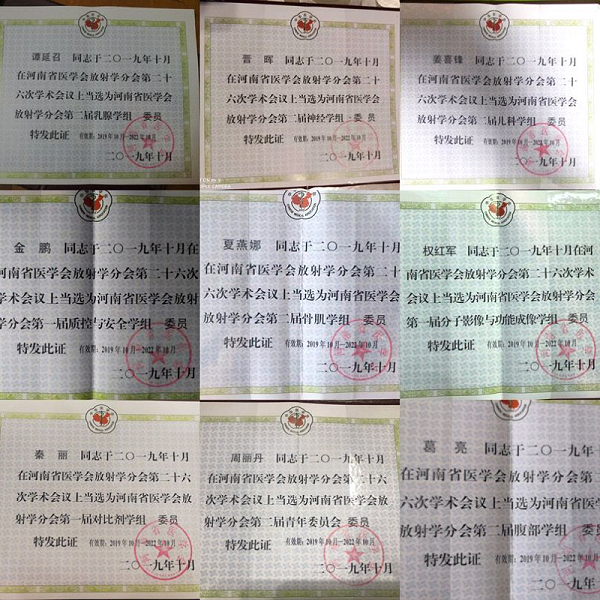 谭延召 同志于二〇一九年十月
在河南省医学会放射学分会第二十
六次学术会议上当选为河南省医学会
放射学分会第二届乳腺学组 委员
特发此证 有效期：2019年10月—2022年10月
二〇一九年十月
晋晖 同志于二〇一九年十月
在河南省医学会放射学分会第二十
六次学术会议上当选为河南省医学会
放射学分会第二届神经学组 委员
特发此证 有效期：2019年10月—2022年10月
二〇一九年十月
姜喜锋 同志于二〇一九年十月
在河南省医学会放射学分会第二十
六次学术会议上当选为河南省医学会
放射学分会第二届儿科学组 委员
特发此证 有效期：2019年10月—2022年10月
二〇一九年十月
金鹏 同志于二〇一九年十月在
河南省医学会放射学分会第二十六次
学术会议上当选为河南省医学会放射
学分会第一届质控与安全学组 委员
特发此证 有效期：2019年10月—2022年10月
二〇一九年十月
夏燕娜 同志于二〇一九年十月
在河南省医学会放射学分会第二十
六次学术会议上当选为河南省医学会
放射学分会第二届骨肌学组 委员
特发此证 有效期：2019年10月—2022年10月
二〇一九年十月
权红军 同志于二〇一九年十月在河
南省医学会放射学分会第二十六次学术
会议上当选为河南省医学会放射学分会
第一届分子影像与功能成像学组 委员
特发此证 有效期：2019年10月—2022年10月
二〇一九年十月
秦丽 同志于二〇一九年十月
在河南省医学会放射学分会第二十六
次学术会议上当选为河南省医学会放
射学分会第一届对比剂学组 委员
特发此证 有效期：2019年10月—2022年10月
二〇一九年十月
周丽丹 同志于二〇一九年十月
在河南省医学会放射学分会第二十六
次学术会议上当选为河南省医学会放
射学分会第二届青年委员会 委员
特发此证 有效期：2019年10月—2022年10月
二〇一九年十月
葛亮 同志于二〇一九年十
在河南省医学会放射学分会第二十
六次学术会议上当选为河南省医学
放射学分会第二届腹部学组 委员
特发此证 有效期：2019年10月—2022年10
二〇一九年十